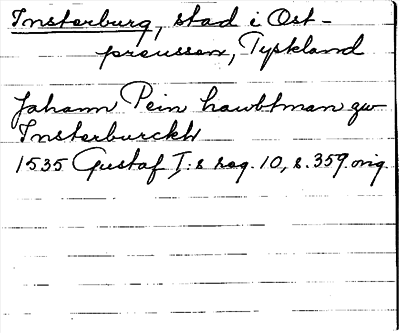 Insterburg, stad i Ost-
preussen, Tyskland
Johann Pein hawbtman zw
Insterburckh
1535 Gustaf I:s reg. 10, s. 359. orig.